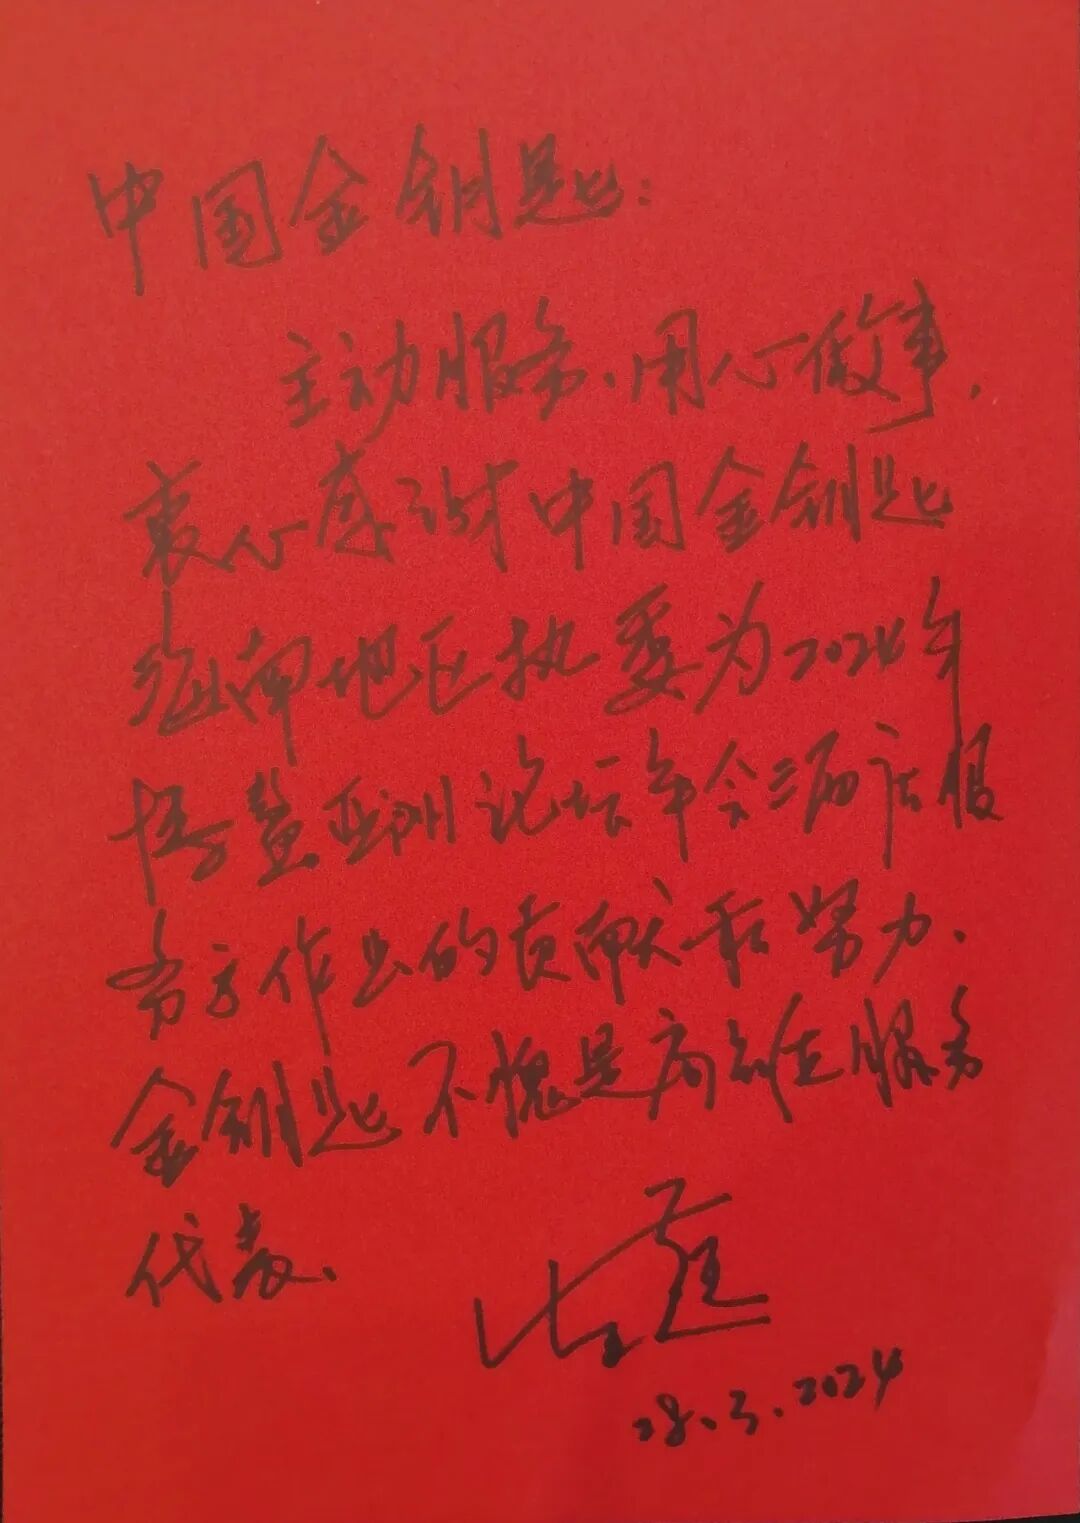 中国金钥匙：
主动服务、用心做事，
衷心感谢中国金钥匙
海南地区执委为2024年
博鳌亚洲论坛年会三届店服
务工作出的贡献和努力、
金钥匙不愧是高端服务
代表、
28.3.2024